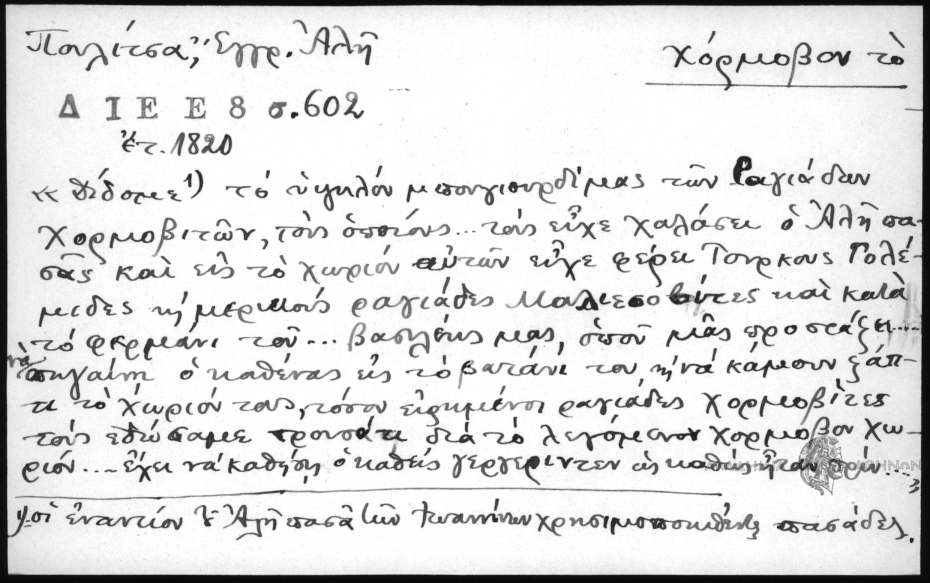 Πουλίτσα, Ἔγγρ. Ἀλῆ
Χόρμοβον τὸ
Δ Ι Ε Ε 8 σ. 602
ἔτ. 1820
« Δίδομε¹) τὸ ὑψηλόν μπουγιουρδί μας τῶν Ραγιάδων
Χορμοβιτῶν, τοὺς ὁποίους... τοὺς εἶχε χαλάσει ὁ Ἀλῆ πα-
σᾶς καὶ εἰς τὸ χωριόν αὐτῶν εἶχε φέρει Τούρκους Γολέ-
μιδες κή μερικούς ραγιάδες καὶ κατὰ
τὸ φερμάνι τοῦ... βασιλέως μας, ὁποῦ μᾶς προστάζει....
νὰ πηγαίνῃ ὁ καθένας εἰς τὸ βατάνι του κή νὰ κάμουν ζάπ-
τι τὸ χωριόν τους, τόσον εἰρημένοι ραγιάδες Χορμοβίτες
τούς ἐδώσαμε διὰ τὸ λεγόμενον Χορμόβον χω-
ριόν.... ἔχει νὰ καθήσῃ ὁ καθείς γεργεριντεν ὡς καθώς ἦταν πρίν...»
1) οἱ ἐναντίον τ. Ἀλῆ πασᾶ τῶν Ἰωαννίνων χρησιμοποιηθέντες πασάδες.